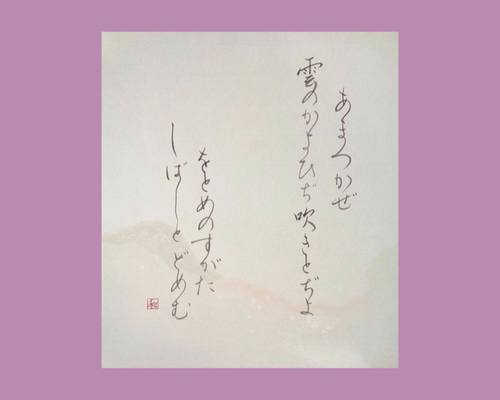 あまつかぜ
雲のかよひぢ吹きとぢよ
をとめのすがた
しばしとどめむ